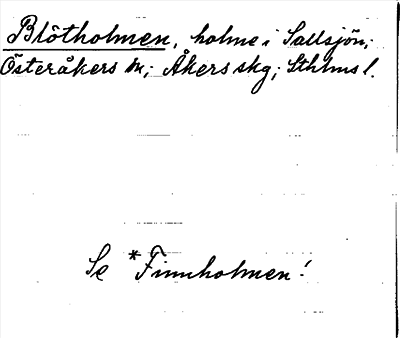 Blötholmen, holme i Sallsjön;
Österåkers sn; Åkers skg; Sthlms l.
Se *Finnholmen!